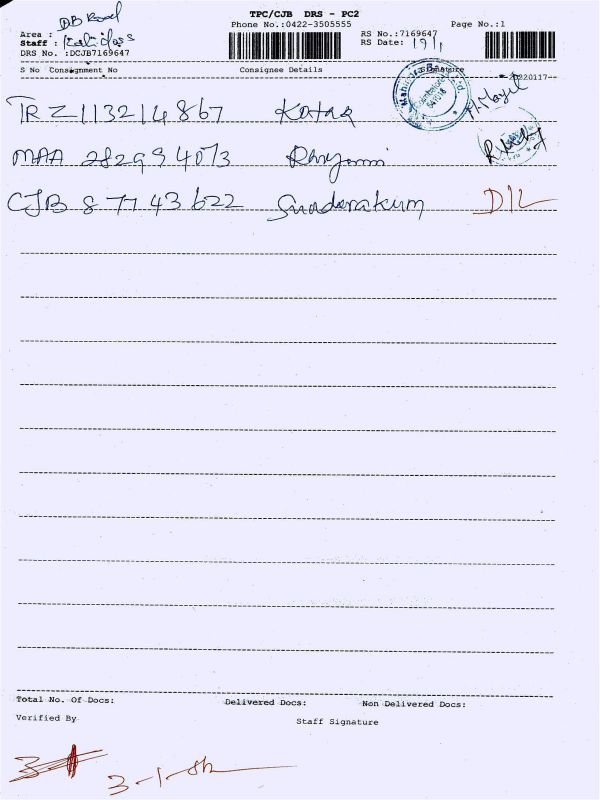 TPC/CJB DRS - PC2
Phone No.:0422-3505555 Page No.:1
Area : DB Road
Staff : Kalidass
DRS No. :DCJB7169647
RS No.:7169647
RS Date: 19/1
S No Consignment No Consignee Details Signature
TRZ 113214867 Kotak
MAA 282994073
CJB 87743622 Sundarakum D/L
Total No. Of Docs: Delivered Docs: Non Delivered Docs:
Verified By Staff Signature
3-1-